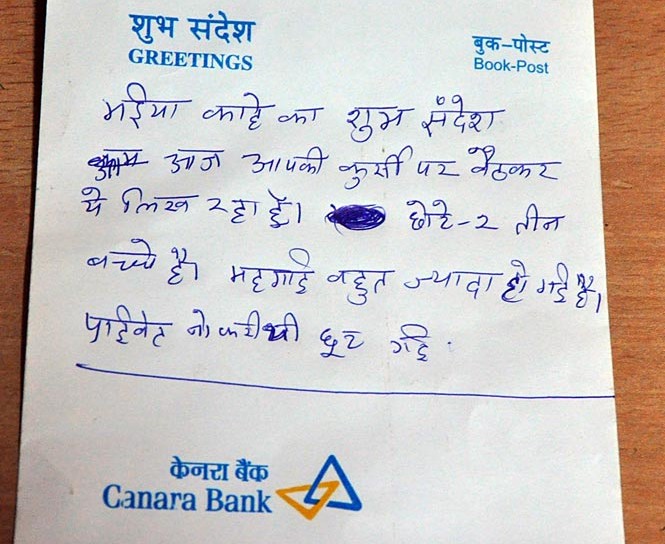 शुभ संदेश
GREETINGS
बुक-पोस्ट
Book-Post
भईया काहे का शुभ संदेश
आज आपकी कुर्सी पर बैठकर
ये लिख रहा हूँ। छोटे-२ तीन
बच्चे है। महगाई बहुत ज्यादा हो गई है।
प्राईवेट नोकरी भी छूट गई.
केनरा बैंक
Canara Bank